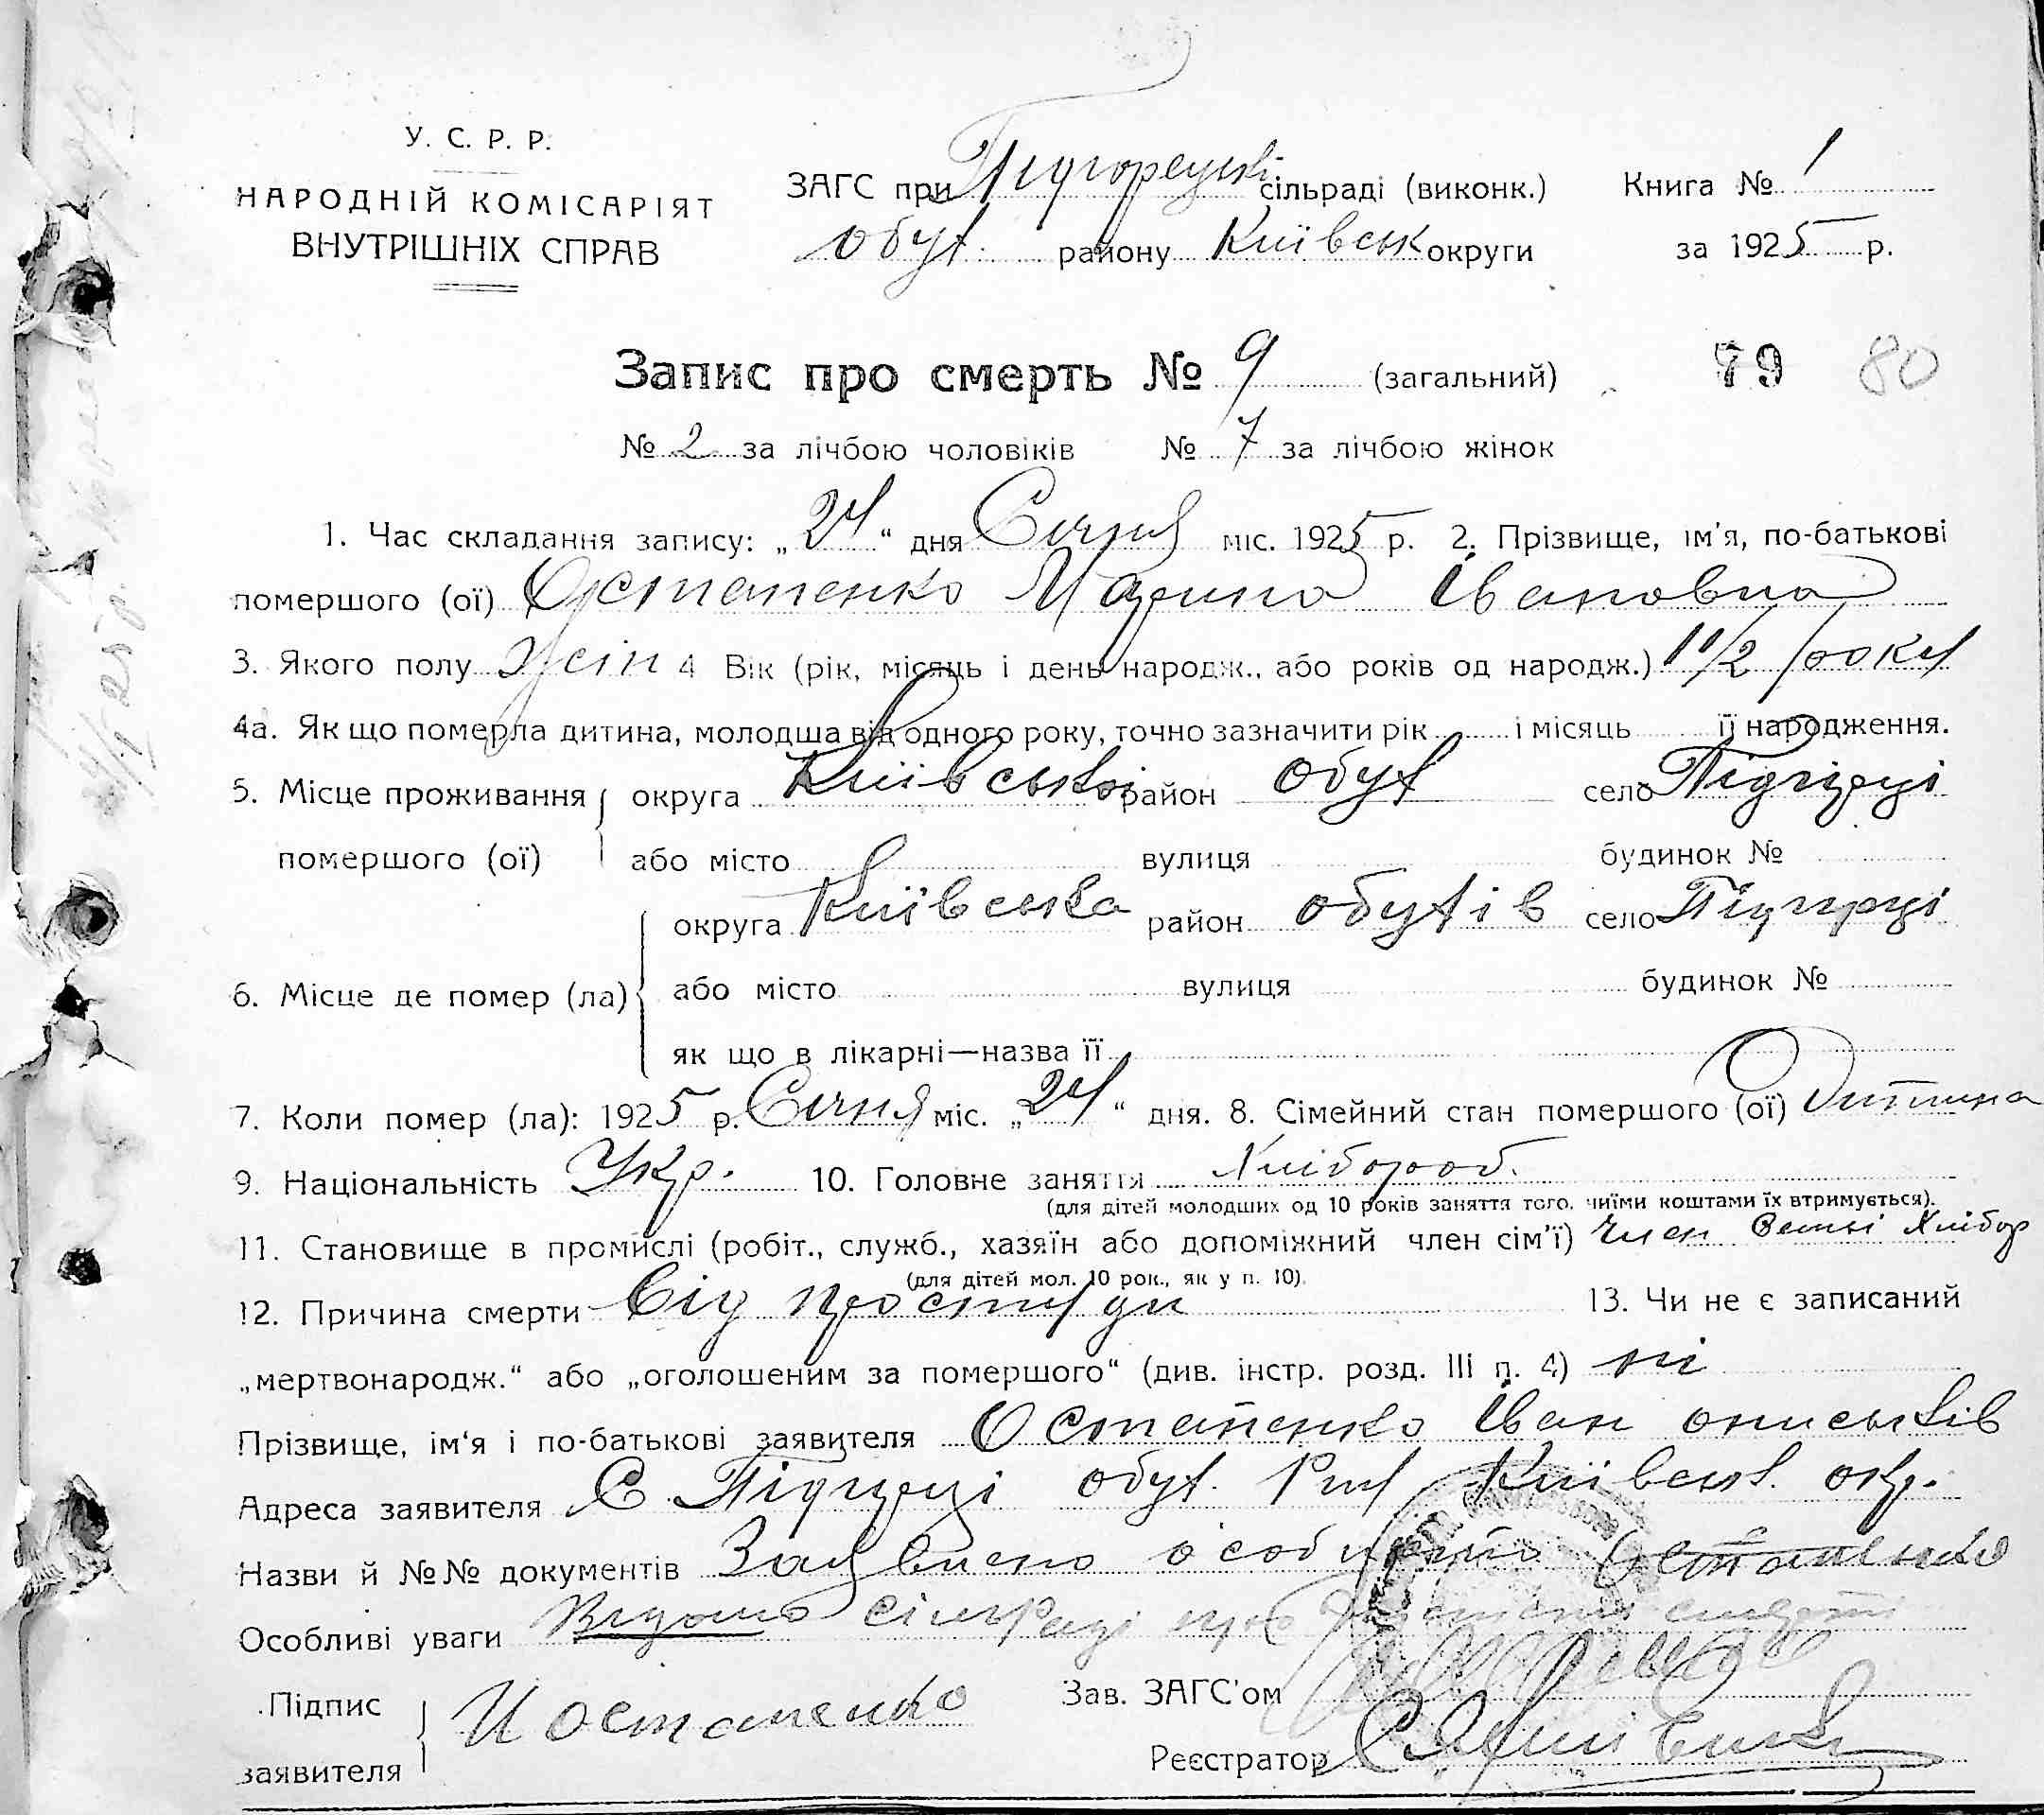 У. С. Р. Р.
НАРОДНІЙ КОМІСАРІЯТ
ВНУТРІШНІХ СПРАВ
ЗАГС при Підгорецькі сільраді (виконк.)
обух. району Київськ округи
Книга № 1
за 1925 р.
Запис про смерть № 9 (загальний)
79 80
№ 2 за лічбою чоловіків № 7 за лічбою жінок
1. Час складання запису: „24“ дня Січня міс. 1925 р. 2. Прізвище, ім'я, по-батькові
помершого (ої) Остапенко Марина Івановна
3. Якого полу жін 4 Вік (рік, місяць і день народж., або років од народж.) 1 1/2 року
4а. Як що померла дитина, молодша від одного року, точно зазначити рік і місяць її народження.
5. Місце проживання округа Київської район обух село Підгірці
помершого (ої) або місто вулиця будинок №
округа Київська район обухів село Підгірці
6. Місце де помер (ла) або місто вулиця будинок №
як що в лікарні—назва її
7. Коли помер (ла): 1925 р. Січня міс. „24“ дня. 8. Сімейний стан помершого (ої) Дитина
9. Національність Укр. 10. Головне заняття Хлібороб.
(для дітей молодших од 10 років заняття того, чиїми коштами їх втримується).
11. Становище в промислі (робіт., служб., хазяїн або допоміжний член сім'ї) Член Хлібор
(для дітей мол. 10 рок., як у п. 10).
12. Причина смерти Від простуди 13. Чи не є записаний
„мертвонародж.“ або „оголошеним за помершого“ (див. інстр. розд. III п. 4) ні
Прізвище, ім'я і по-батькові заявителя Остапенко Іван ониськів
Адреса заявителя С. Підгірці обух. Київськ. окр.
Назви й №№ документів Заявлено Остапенко
Особливі уваги Відомо сільраді про смерті
Підпис
заявителя И Остапенко
Зав. ЗАГС'ом
Реєстратор